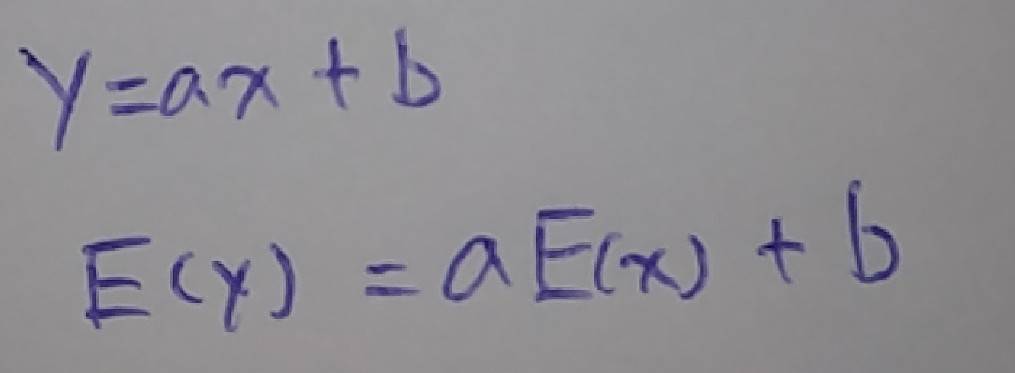 Y=ax + b
E(Y) = a E(x) + b